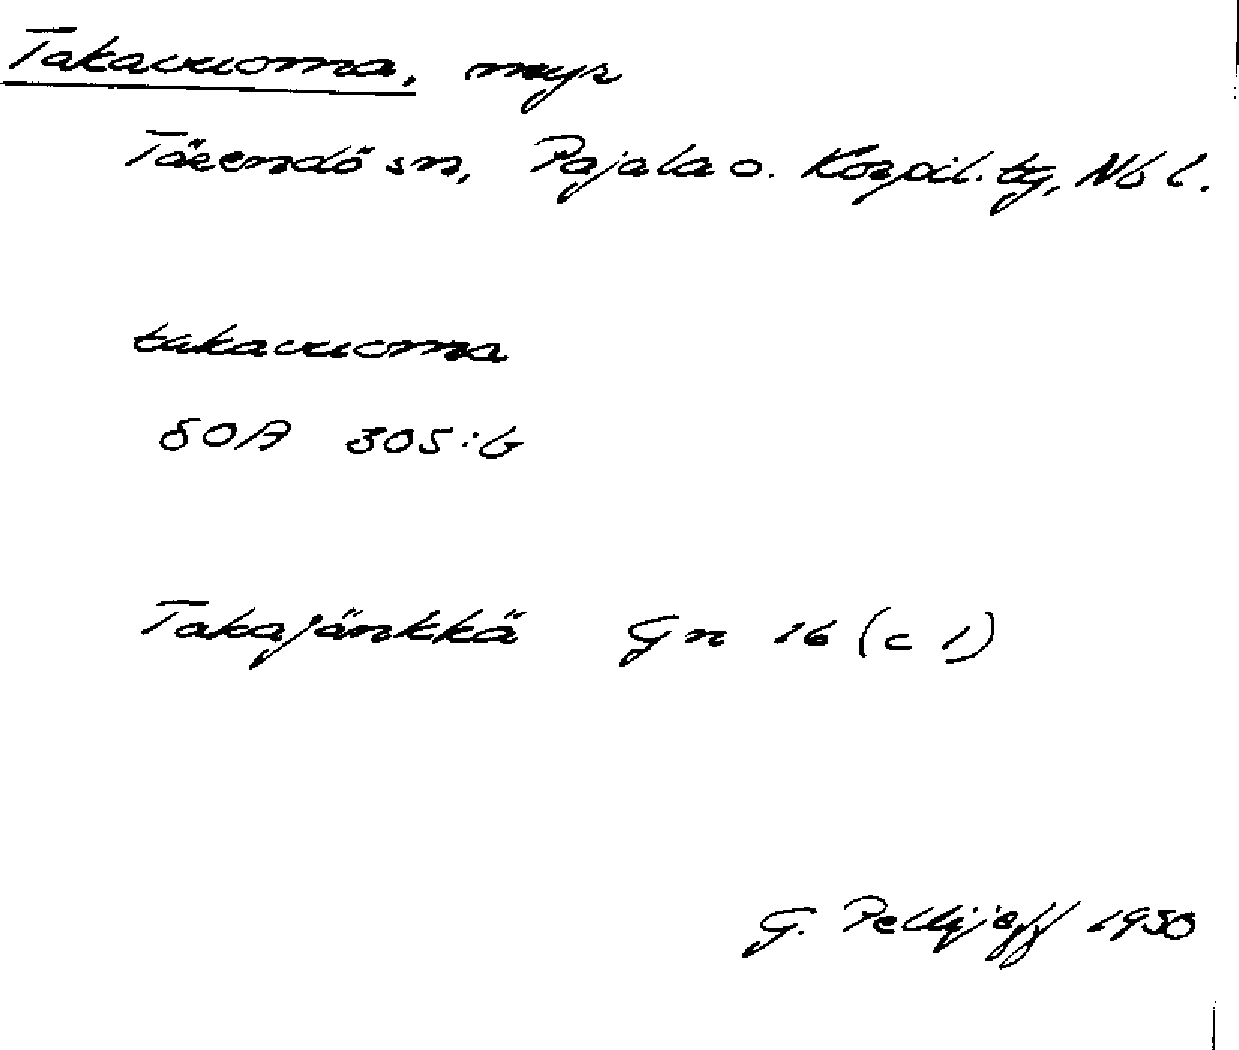 Takavuoma, myr
Täendö sn, Pajala o. Korpil. tg, Nb l.
takavuoma
SOA 305:6
Takajänkkä Gn 16 (c 1)
G. Pellijeff 1950